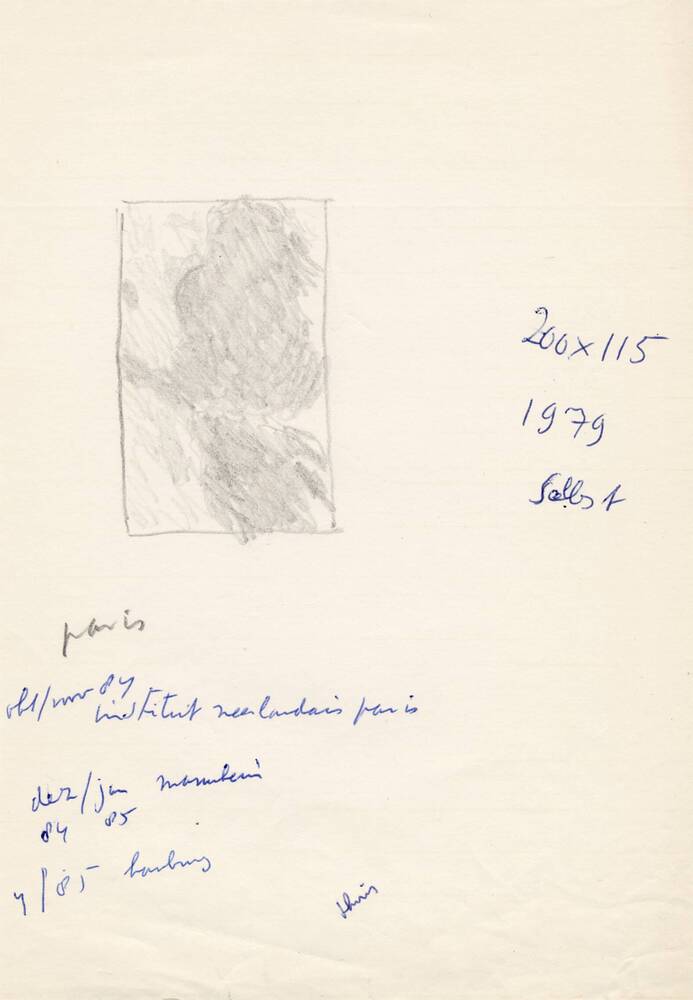 200x115
1979
Selbst
paris
okt/nov 84
institut neerlandais paris
dez/jan mannheim
84 85
4/85